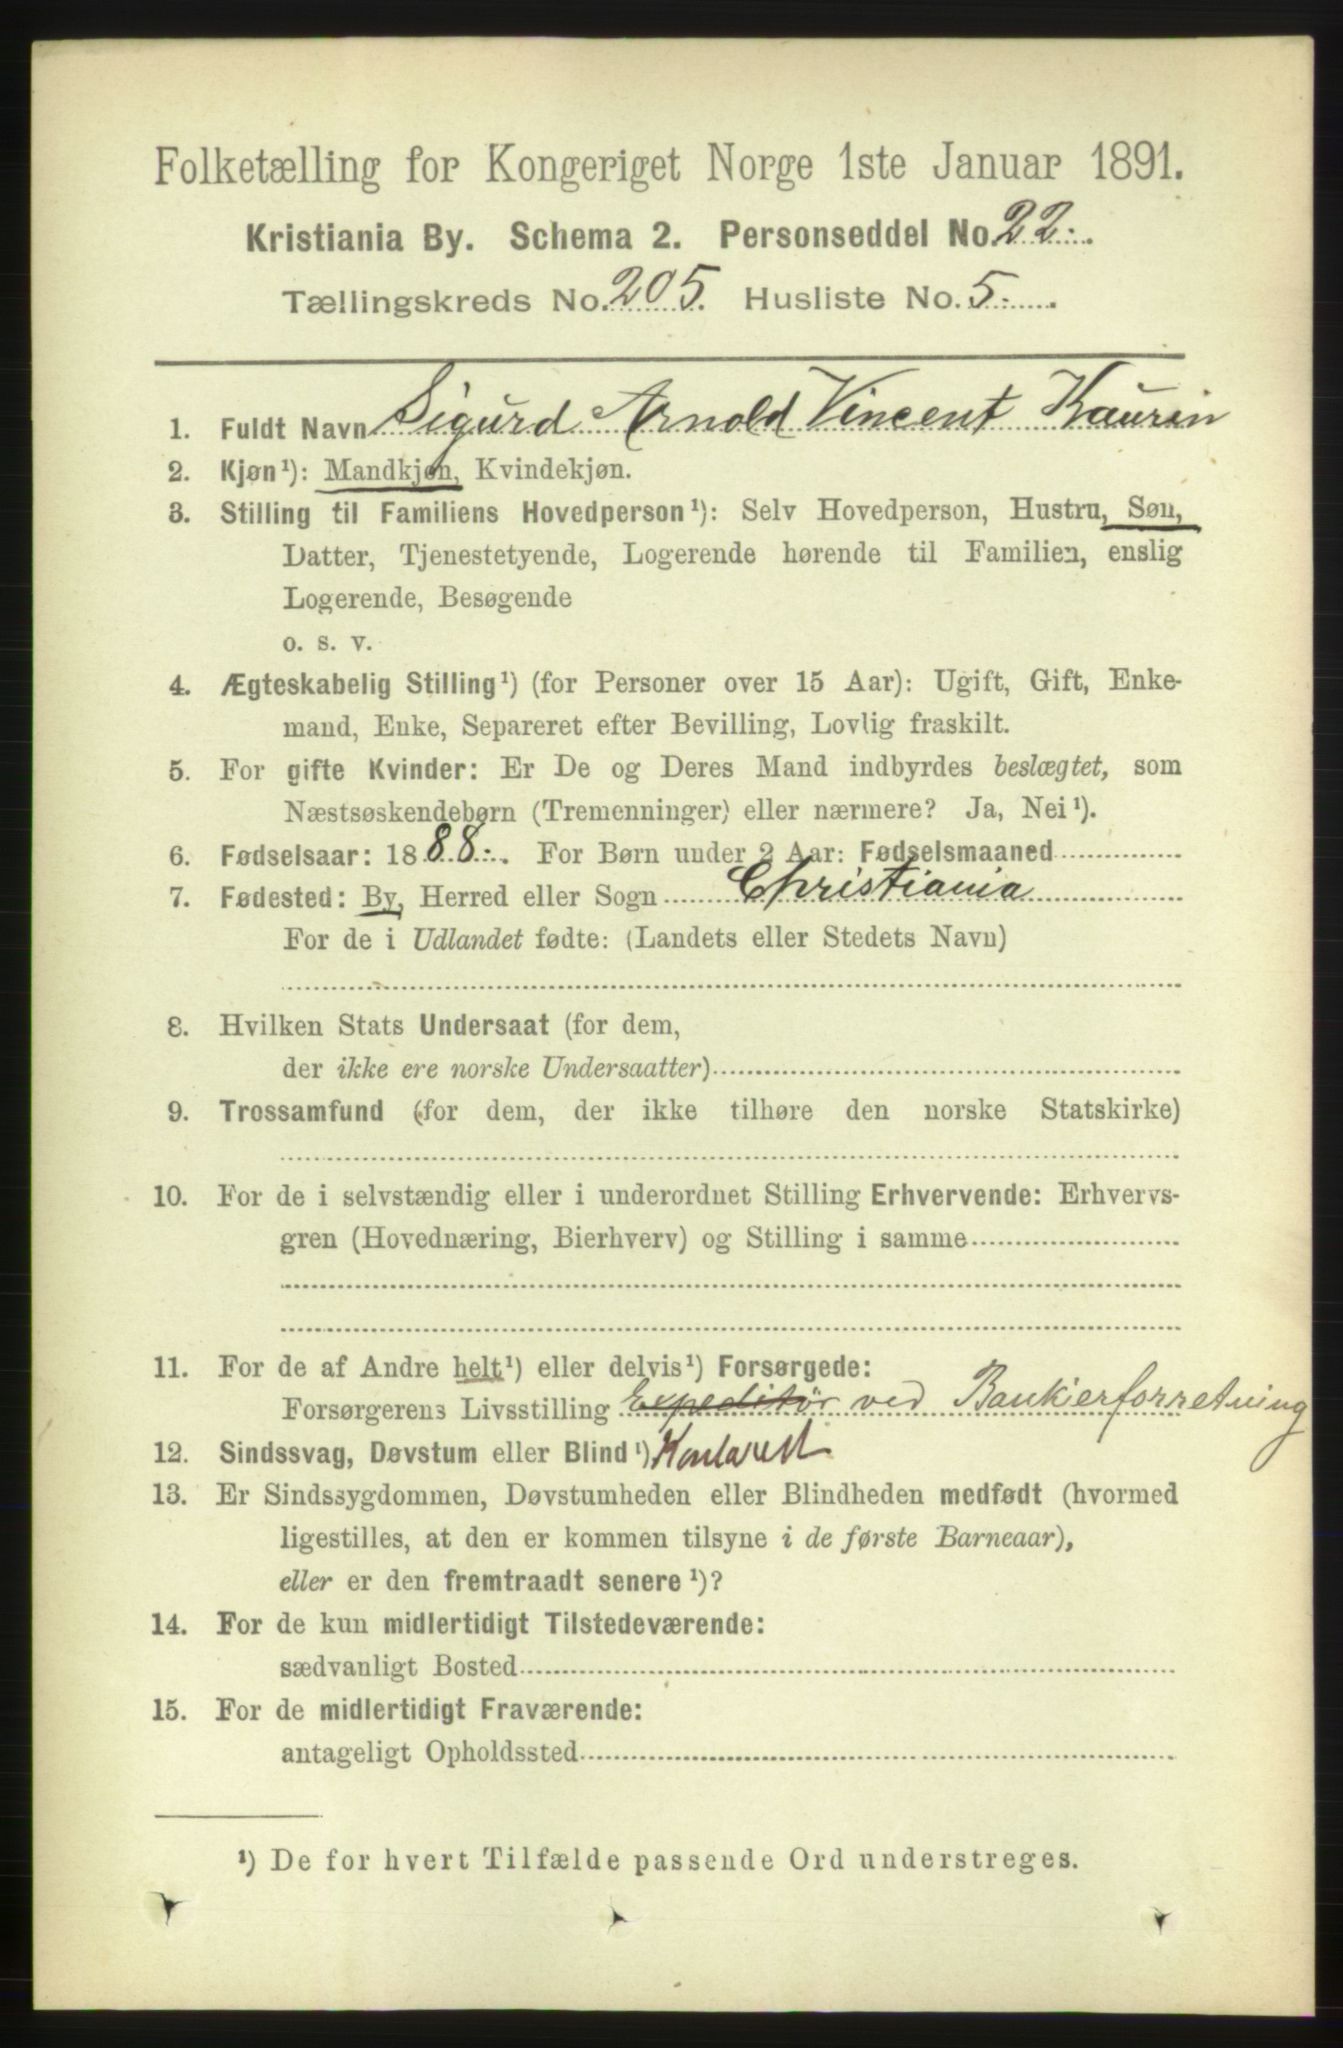 Folketælling for Kongeriget Norge 1ste Januar 1891.
Kristiania By. Schema 2. Personseddel No. 22.
Tællingskreds No. 205. Husliste No. 5.
1. Fuldt Navn Sigurd Arnold Vincent Kaurin
2. Kjøn¹): Mandkjøn, Kvindekjøn.
3. Stilling til Familiens Hovedperson¹): Selv Hovedperson, Hustru, Søn,
Datter, Tjenestetyende, Logerende hørende til Familien, enslig
Logerende, Besøgende
o. s. v.
4. Ægteskabelig Stilling¹) (for Personer over 15 Aar): Ugift, Gift, Enke-
mand, Enke, Separeret efter Bevilling, Lovlig fraskilt.
5. For gifte Kvinder: Er De og Deres Mand indbyrdes beslægtet, som
Næstsøskendebørn (Tremenninger) eller nærmere? Ja, Nei¹).
6. Fødselsaar: 1888. For Børn under 2 Aar: Fødselsmaaned
7. Fødested: By, Herred eller Sogn Christiania
For de i Udlandet fødte: (Landets eller Stedets Navn)
8. Hvilken Stats Undersaat (for dem,
der ikke ere norske Undersaatter)
9. Trossamfund (for dem, der ikke tilhøre den norske Statskirke)
10. For de i selvstændig eller i underordnet Stilling Erhvervende: Erhvervs-
gren (Hovednæring, Bierhverv) og Stilling i samme
11. For de af Andre helt¹) eller delvis¹) Forsørgede:
Forsørgerens Livsstilling Expeditør ved Bankierforretning
12. Sindssvag, Døvstum eller Blind¹) Kontorist
13. Er Sindssygdommen, Døvstumheden eller Blindheden medfødt (hvormed
ligestilles, at den er kommen tilsyne i de første Barneaar),
eller er den fremtraadt senere¹)?
14. For de kun midlertidigt Tilstedeværende:
sædvanligt Bosted
15. For de midlertidigt Fraværende:
antageligt Opholdssted
¹) De for hvert Tilfælde passende Ord understreges.